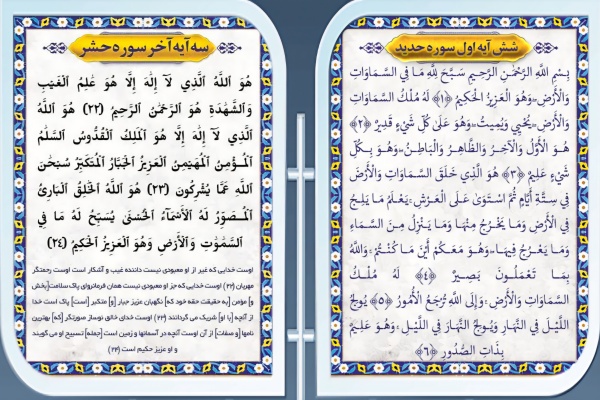 شش آیه اول سوره حدید
بِسْمِ اللَّهِ الرَّحْمَٰنِ الرَّحِيمِ سَبَّحَ لِلَّهِ مَا فِي السَّمَاوَاتِ
وَالْأَرْضِ وَهُوَ الْعَزِيزُ الْحَكِيمُ ﴿۱﴾ لَهُ مُلْكُ السَّمَاوَاتِ
وَالْأَرْضِ يُحْيِي وَيُمِيتُ وَهُوَ عَلَىٰ كُلِّ شَيْءٍ قَدِيرٌ ﴿۲﴾
هُوَ الْأَوَّلُ وَالْآخِرُ وَالظَّاهِرُ وَالْبَاطِنُ وَهُوَ بِكُلِّ
شَيْءٍ عَلِيمٌ ﴿۳﴾ هُوَ الَّذِي خَلَقَ السَّمَاوَاتِ وَالْأَرْضَ
فِي سِتَّةِ أَيَّامٍ ثُمَّ اسْتَوَىٰ عَلَى الْعَرْشِ يَعْلَمُ مَا يَلِجُ
فِي الْأَرْضِ وَمَا يَخْرُجُ مِنْهَا وَمَا يَنْزِلُ مِنَ السَّمَاءِ
وَمَا يَعْرُجُ فِيهَا وَهُوَ مَعَكُمْ أَيْنَ مَا كُنْتُمْ وَاللَّهُ
بِمَا تَعْمَلُونَ بَصِيرٌ ﴿٤﴾ لَهُ مُلْكُ
السَّمَاوَاتِ وَالْأَرْضِ وَإِلَى اللَّهِ تُرْجَعُ الْأُمُورُ ﴿٥﴾ يُولِجُ
اللَّيْلَ فِي النَّهَارِ وَيُولِجُ النَّهَارَ فِي اللَّيْلِ وَهُوَ عَلِيمٌ
بِذَاتِ الصُّدُورِ ﴿٦﴾
سه آیه آخر سوره حشر
هُوَ ٱللَّهُ ٱلَّذِي لَآ إِلَٰهَ إِلَّا هُوَ عَٰلِمُ ٱلْغَيْبِ
وَٱلشَّهَٰدَةِ هُوَ ٱلرَّحْمَٰنُ ٱلرَّحِيمُ (۲۲) هُوَ ٱللَّهُ
ٱلَّذِي لَآ إِلَٰهَ إِلَّا هُوَ ٱلْمَلِكُ ٱلْقُدُّوسُ ٱلسَّلَٰمُ
ٱلْمُؤْمِنُ ٱلْمُهَيْمِنُ ٱلْعَزِيزُ ٱلْجَبَّارُ ٱلْمُتَكَبِّرُ سُبْحَٰنَ
ٱللَّهِ عَمَّا يُشْرِكُونَ (۲۳) هُوَ ٱللَّهُ ٱلْخَٰلِقُ ٱلْبَارِئُ
ٱلْمُصَوِّرُ لَهُ ٱلْأَسْمَآءُ ٱلْحُسْنَىٰ يُسَبِّحُ لَهُ مَا فِي
ٱلسَّمَٰوَٰتِ وَٱلْأَرْضِ وَهُوَ ٱلْعَزِيزُ ٱلْحَكِيمُ (۲٤)
اوست خدایی که غیر از او معبودی نیست داننده غیب و آشکار است اوست رحمتگر
مهربان (۲۲) اوست خدایی که جز او معبودی نیست همان فرمانروای پاک سلامت[بخش
و] مؤمن [به حقیقت حقه خود که] نگهبان عزیز جبار [و] متکبر [است] پاک است خدا
از آنچه [با او] شریک می گردانند (۲۳) اوست خدای خالق نوساز صورتگر [که] بهترین
نامها [و صفات] از آن اوست آنچه در آسمانها و زمین است [جمله] تسبیح او می گویند
و او عزیز حکیم است (۲۴)